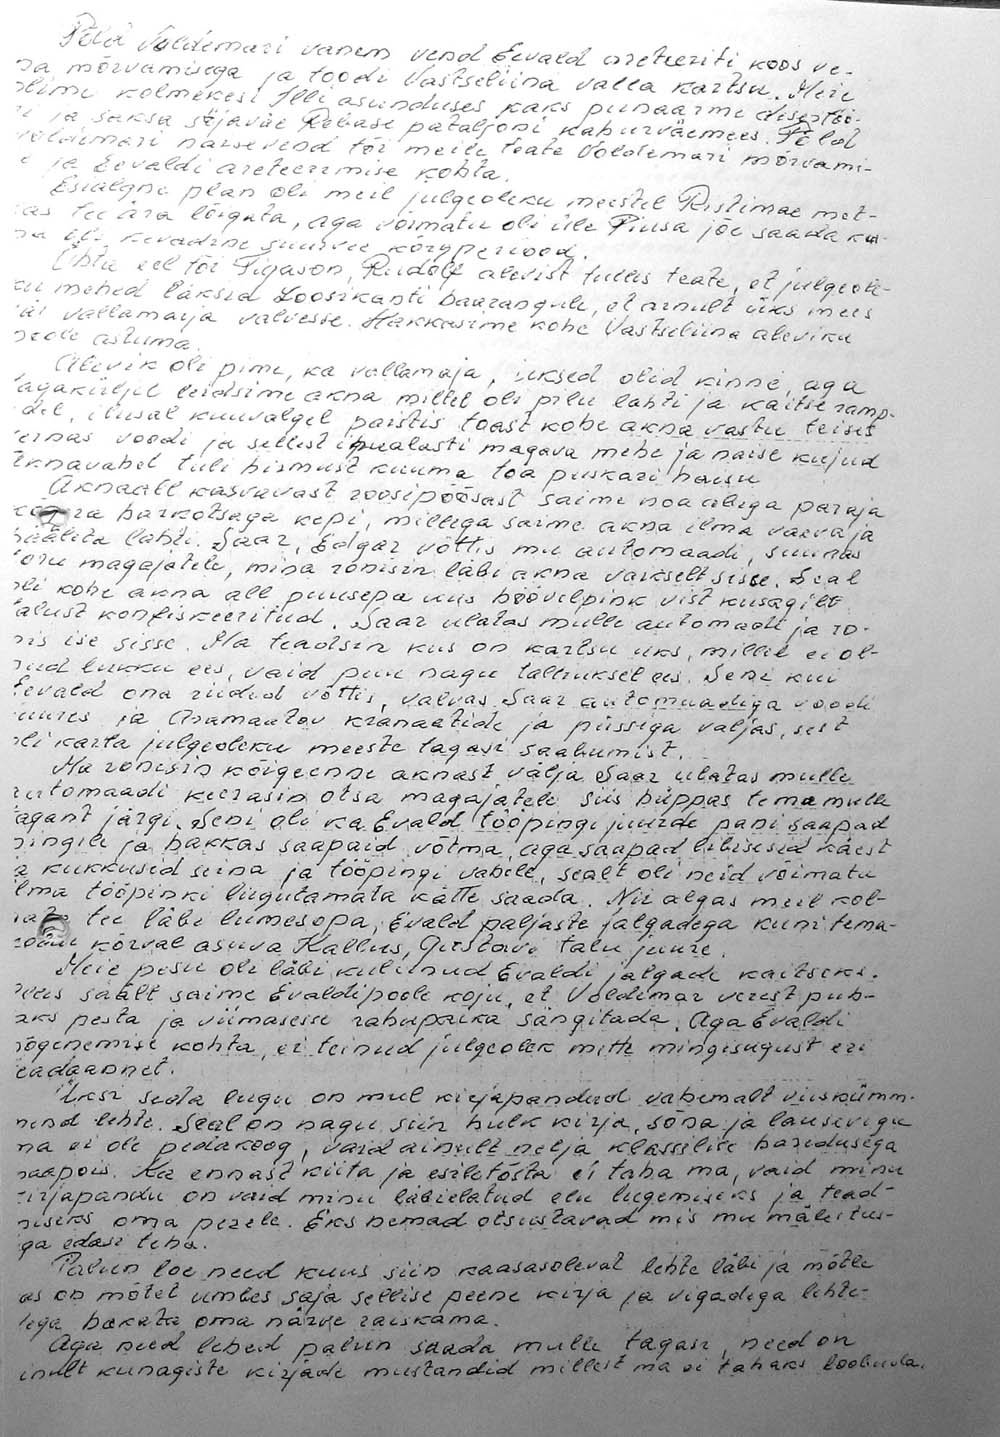 Põld Voldemari vanem vend Eevald areteeriti koos ve-
na mõrvamisega ja toodi Vastseliina valla kartsu. Meie
olime kolmekesi Illi asunduses kaks punaarme disertöö-
ri ja saksa sõjaväe Rebase pataljoni kahurväemees. Põld
Voldemari naisevend tõi meile teate Voldemari mõrvami-
e ja Eevaldi areteerimise kohta.
Esialgne plan oli meil julgeoleku meestel Ristimäe met-
sas tee ära lõigata, aga võimatu oli üle Piusa jõe saada ku-
na oli kevadine suurvee kõrgperiood.
Õhtu eel tõi Pigason, Rudolf alevist tulles teate, et julgeole-
ku mehed läksid Loosikanti haarangule, et ainult üks mees
jäi vallamaija valvesse. Hakkasime kohe Vastseliina aleviku
poole astuma.
Alevik oli pime, ka vallamaja, uksed olid kinni, aga
tagaküljel leidsime akna millel oli pilu lahti ja kaitseramp
del, ilusal kuuvalgel paistis toast kohe akna vastu teises
seinas voodi ja sellest ihualasti magava mehe ja naise kujud
Aknavahel tuli hirmust kuuma toa puskari haisu
Aknaall kasvavast roosipõõsast saime noa abiga paraja
konra harkotsaga kepi, millega saime akna ilma vaeva ja
häälita lahti. Saar, Edgar võttis mu automaadi, suunas
toru magajatele, mina ronisin läbi akna vaikselt sisse. Seal
oli kohe akna all puusepa uus höövelpink vist kusagilt
talust konfiskeeritud. Saar ulatas mulle automaadi ja ro-
nis ise sisse. Ma teadsin kus on kartsu uks, millel ei ol-
nud lukku ees, vaid puu nagu talluksel ees. Seni kui
Eevald oma riided võttis, valvas Saar automaadiga voodi
juures ja Aramaatov kranaatide ja püssiga väljas, sest
oli karta julgeoleku meeste tagasi saabumist.
Ma ronisin kõigeenne aknast välja Saar ulatas mulle
automaadi keerasin otsa magajatele siis hüppas tema mulle
tagant järgi. Seni oli ka Evald tööpingi juurde pani saapad
pingile ja hakkas saapaid võtma, aga saapad libisesid käest
ja kukkusid seina ja tööpingi vahele, sealt oli neid võimatu
ilma tööpinki liigutamata kätte saada. Nii algas meil kol-
tee läbi lumesopa, Evald paljaste jalgadega kuni tema-
kodu kõrval asuva Kallus, Gustavi talu juure.
Meie pesu oli läbi kulunud Evaldi jalgade kaitseks.
Alles säält saime Evaldi poole koju, et Voldimar verest puh-
taks pesta ja viimasesse rahupaika sängitada. Aga Evaldi
põgenemise kohta, ei teinud julgeolek mitte mingisugust eri
teadaannet.
Üksi seda lugu on mul kirjapandud vähemalt viiskümm-
mend lehte. Seal on nagu siin hulk kirja, sõna ja lausevigu
ma ei ole pedakoog, vaid ainult nelja klassilise haridusega
maapois. Ka ennast kiita ja esiletõsta ei taha ma, vaid minu
kirjapandu on vaid minu läbielatud elu lugemiseks ja tead-
miseks oma perele. Eks nemad otsustavad mis mu mälestus-
ga edasi teha.
Palun loe need kuus siin kaasasolevat lehte läbi ja mõtle
kas on mõtet umbes saja sellise peene kirja ja vigadega lehte-
dega hakata oma närve raiskama.
Aga need lehed palun saada mulle tagasi, need on
ainult kunagiste kirjade mustandid millest ma ei tahaks loobuda.